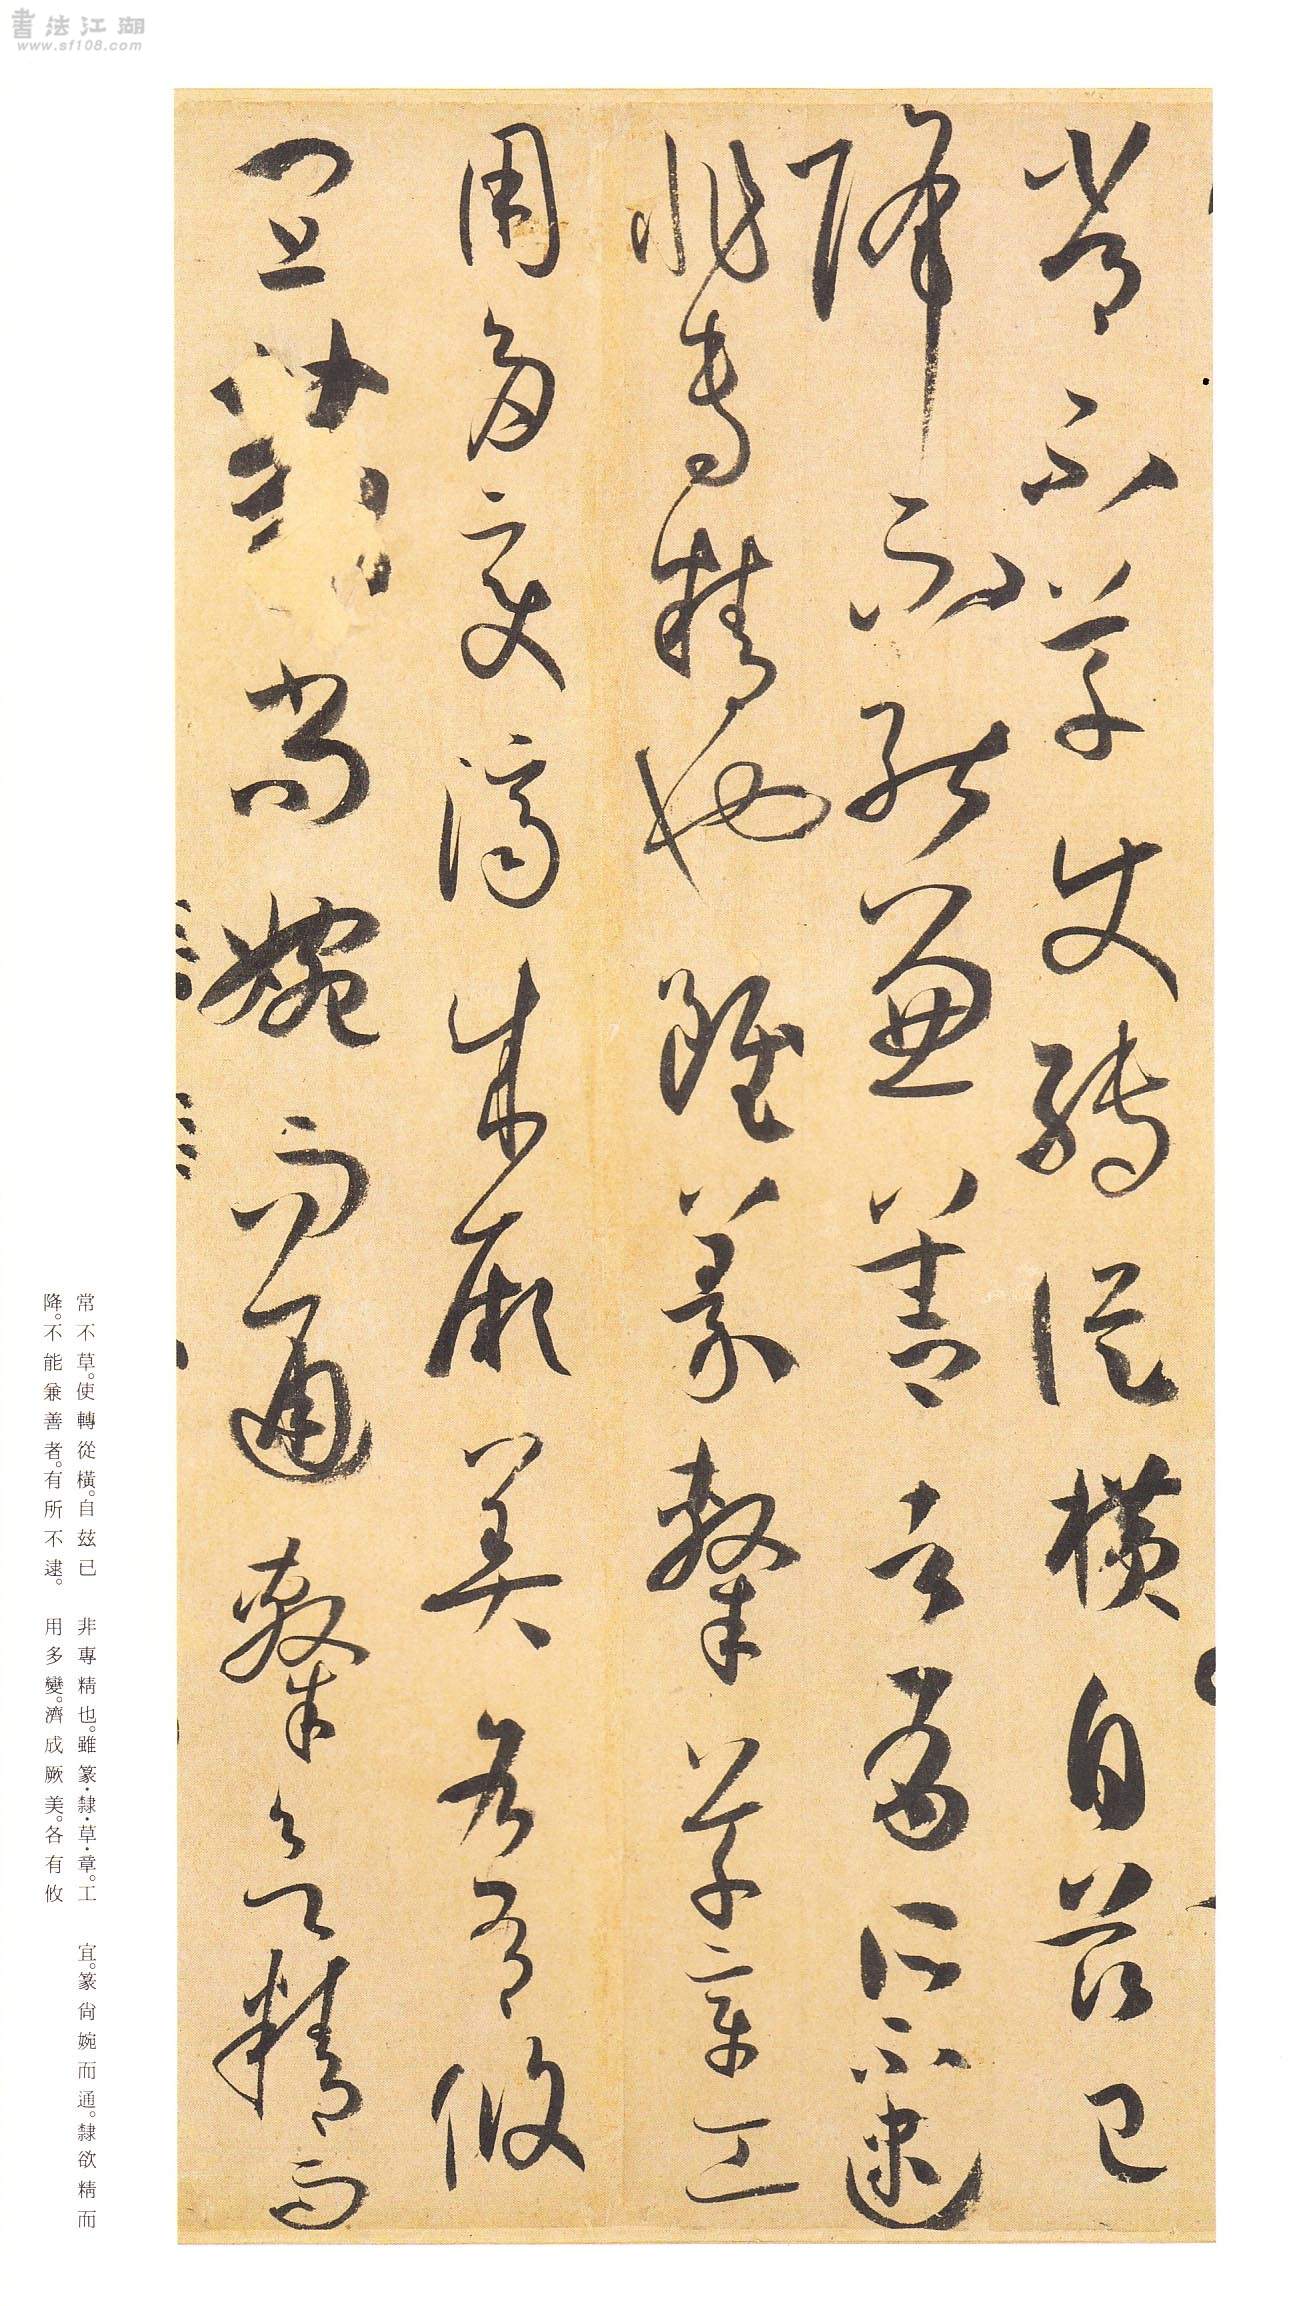 書法江湖
www.sf108.com
常不草使轉從橫自茲已
降不能兼善者有所不逮
非專精也雖篆隸草章工
用多變濟成厥美各有攸
宜篆尚婉而通隸欲精而
常不草。使轉從橫。自玆已
降。不能兼善者。有所不逮。
非專精也。雖篆·隸·草·章。工
用多變。濟成厥美。各有攸
宜。篆尙婉而通。隸欲精而